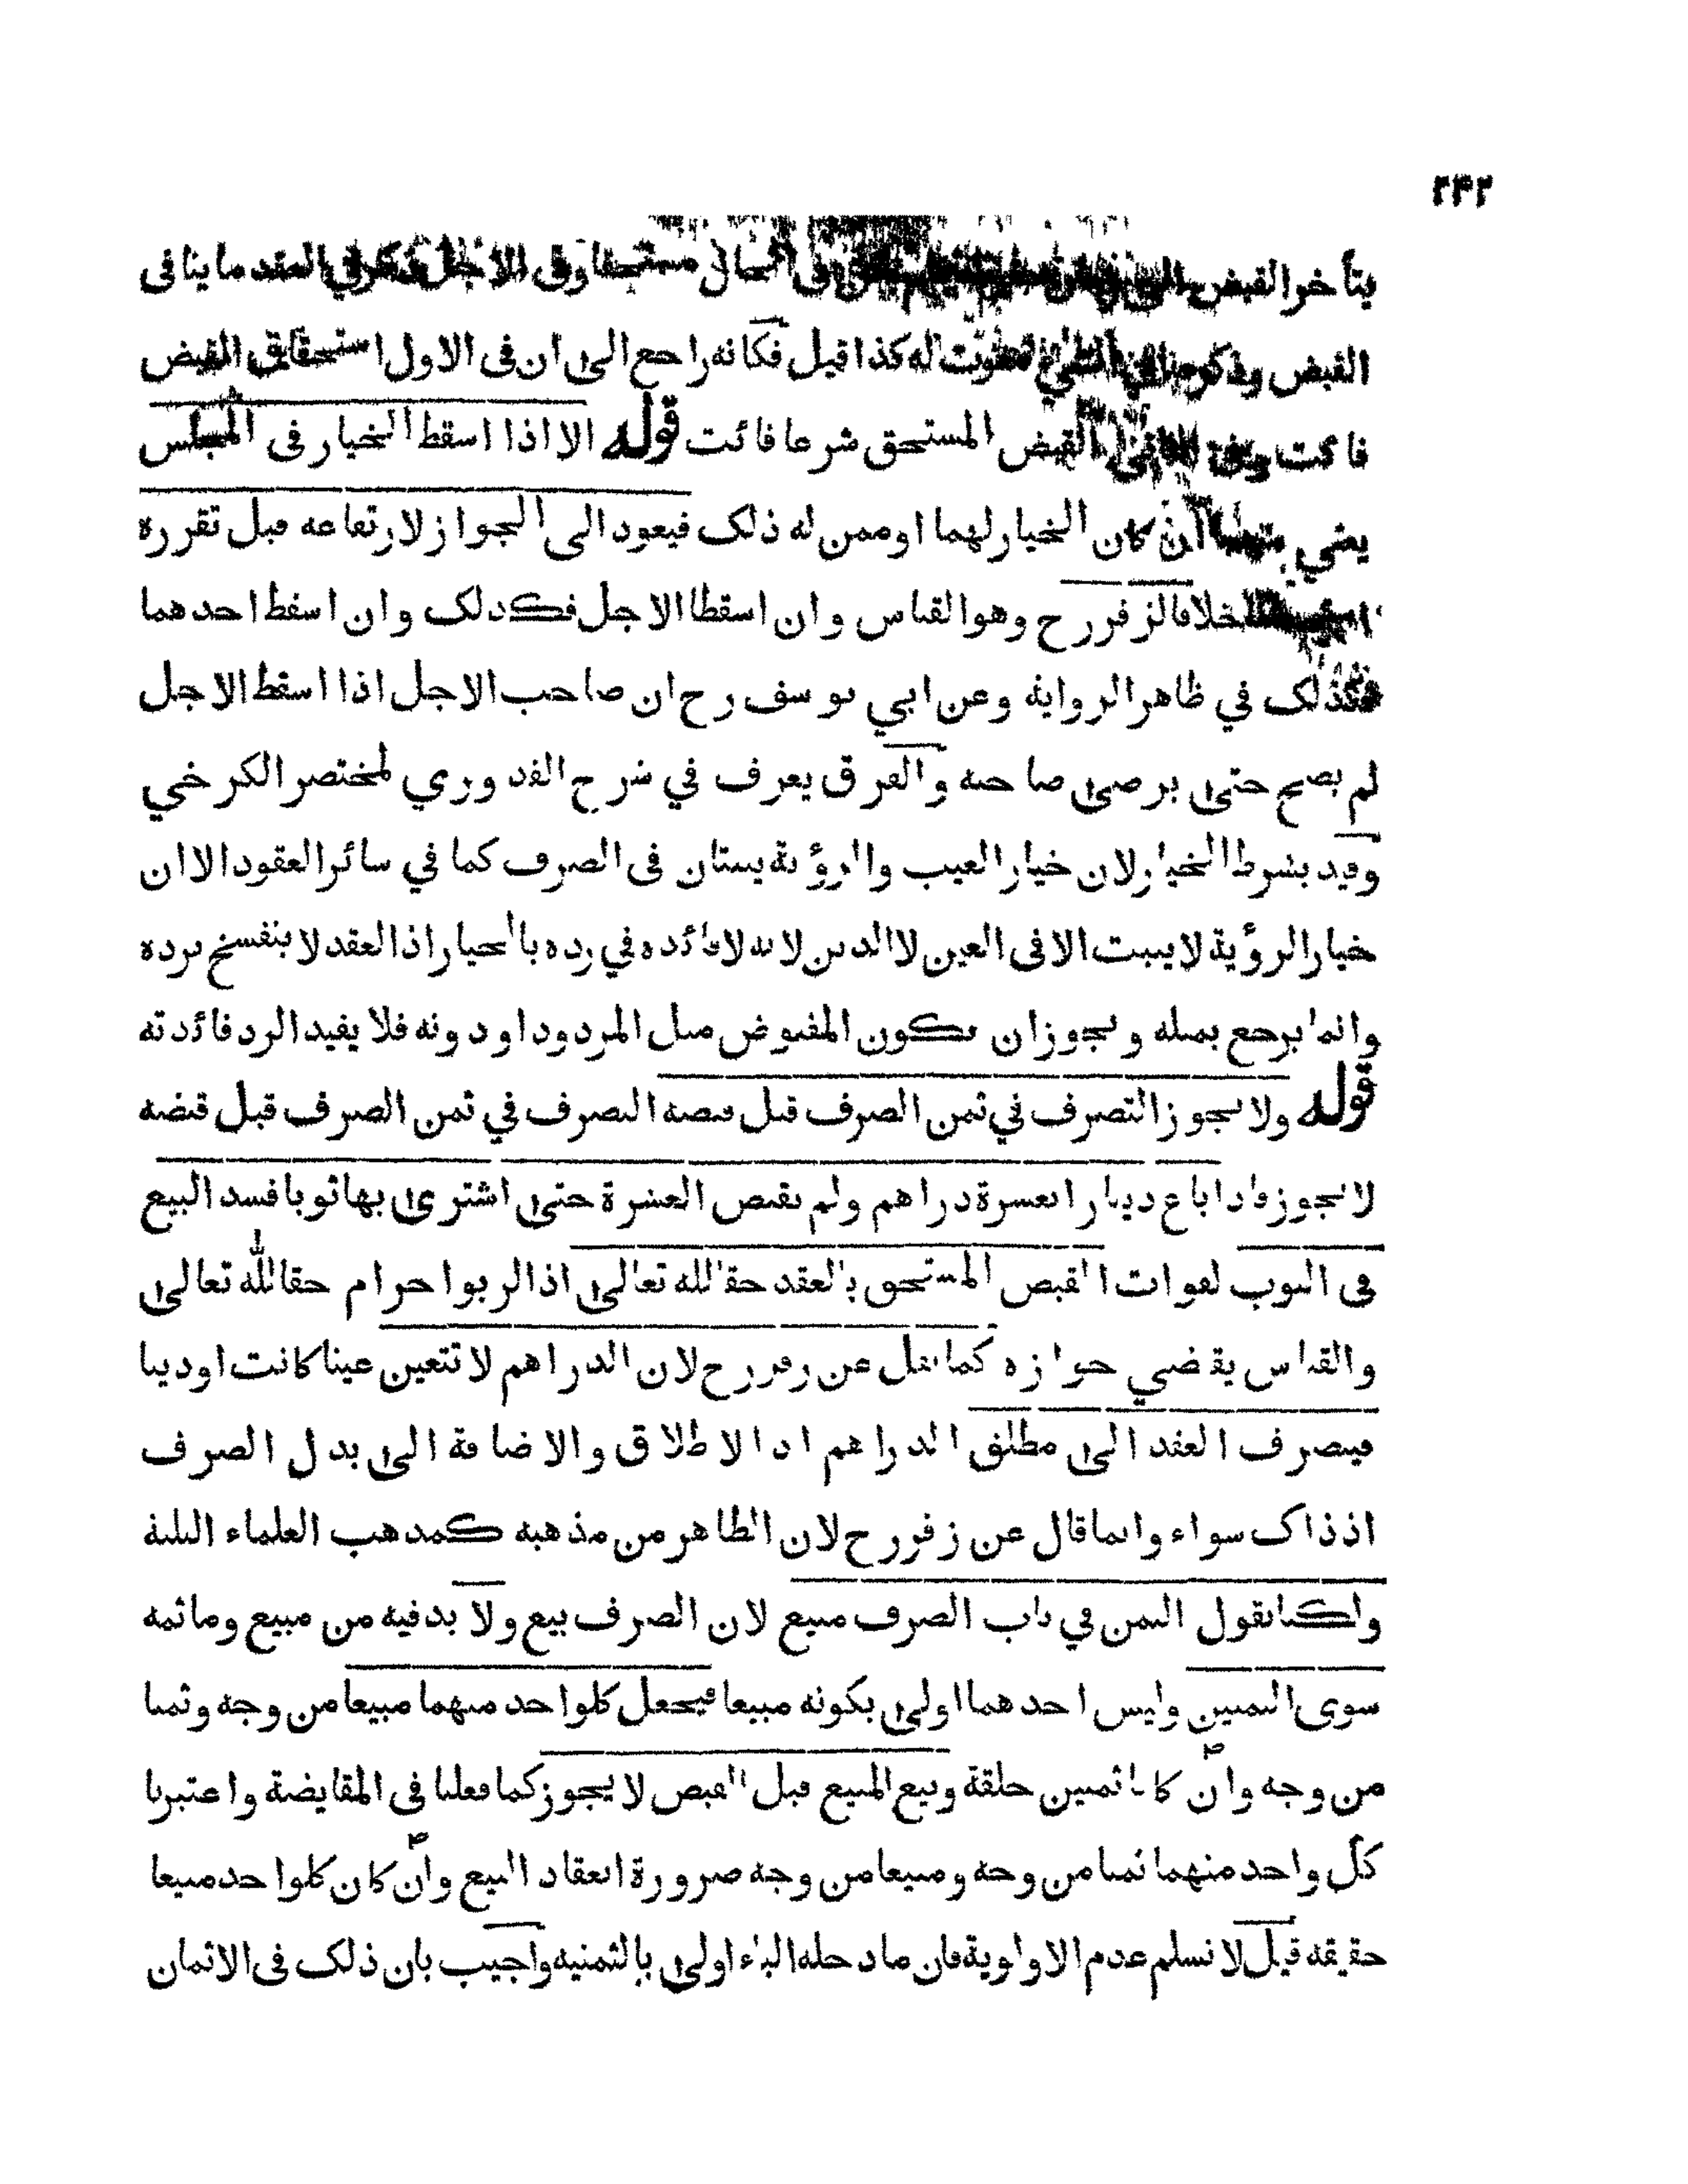 ۲۴۲
يتأخر القبض الى في الحال مستحقا وفي الاجل ذكر في العقد ما ينافى
القبض وذكر له كذا قيل فكانه راجع الى ان فى الاول استحقاق القبض
فائت وفى القبض المستحق شرعا فائت قوله الا اذا اسقط الخيار فى المجلس
يعني ان كان الخيار لهما او ممن له ذلك فيعود الى الجواز لارتفاعه قبل تقرره
خلافا لزفر رح وهو القياس وان اسقطا الاجل فكذلك وان اسقط احدهما
فكذلك في ظاهر الرواية وعن ابي يوسف رح ان صاحب الاجل اذا اسقط الاجل
لم يصح حتى يرضى صاحبه والفرق يعرف في شرح القدوري لمختصر الكرخي
وقيد بشرط الخيار لان خيار العيب والرؤية يثبتان فى الصرف كما في سائر العقود الا ان
خيار الرؤية لا يثبت الا فى العين لا الدين لانه لا فائدة في رده بالخيار اذ العقد لا ينفسخ برده
وانما يرجع بمثله ويجوز ان يكون المقبوض مثل المردود او دونه فلا يفيد الرد فائدته
قوله ولا يجوز التصرف في ثمن الصرف قبل قبضه التصرف في ثمن الصرف قبل قبضه
لا يجوز فاذا باع دينارا بعشرة دراهم ولم يقبض العشرة حتى اشترى بها ثوبا فسد البيع
فى الثوب لفوات القبض المستحق بالعقد حقا لله تعالى اذ الربوا حرام حقا لله تعالى
والقياس يقضي جوازه كما نقل عن زفر رح لان الدراهم لا تتعين عينا كانت او دينا
فينصرف العقد الى مطلق الدراهم اذ الاطلاق والاضافة الى بدل الصرف
اذ ذاك سواء وانما قال عن زفر رح لان الظاهر من مذهبه كمذهب العلماء الثلثة
ولكنا نقول الثمن في باب الصرف مبيع لان الصرف بيع ولا بد فيه من مبيع وما ثمه
سوى الثمنين وليس احدهما اولى بكونه مبيعا فيجعل كلواحد منهما مبيعا من وجه وثمنا
من وجه وان كانا ثمنين خلقة وبيع المبيع قبل القبض لا يجوز كما فعلنا فى المقايضة واعتبرنا
كل واحد منهما ثمنا من وجه ومبيعا من وجه ضرورة انعقاد البيع وان كان كلواحد مبيعا
حقيقه قيل لا نسلم عدم الاولوية فان ما دخله الباء اولى بالثمنيه واجيب بان ذلك فى الاثمان